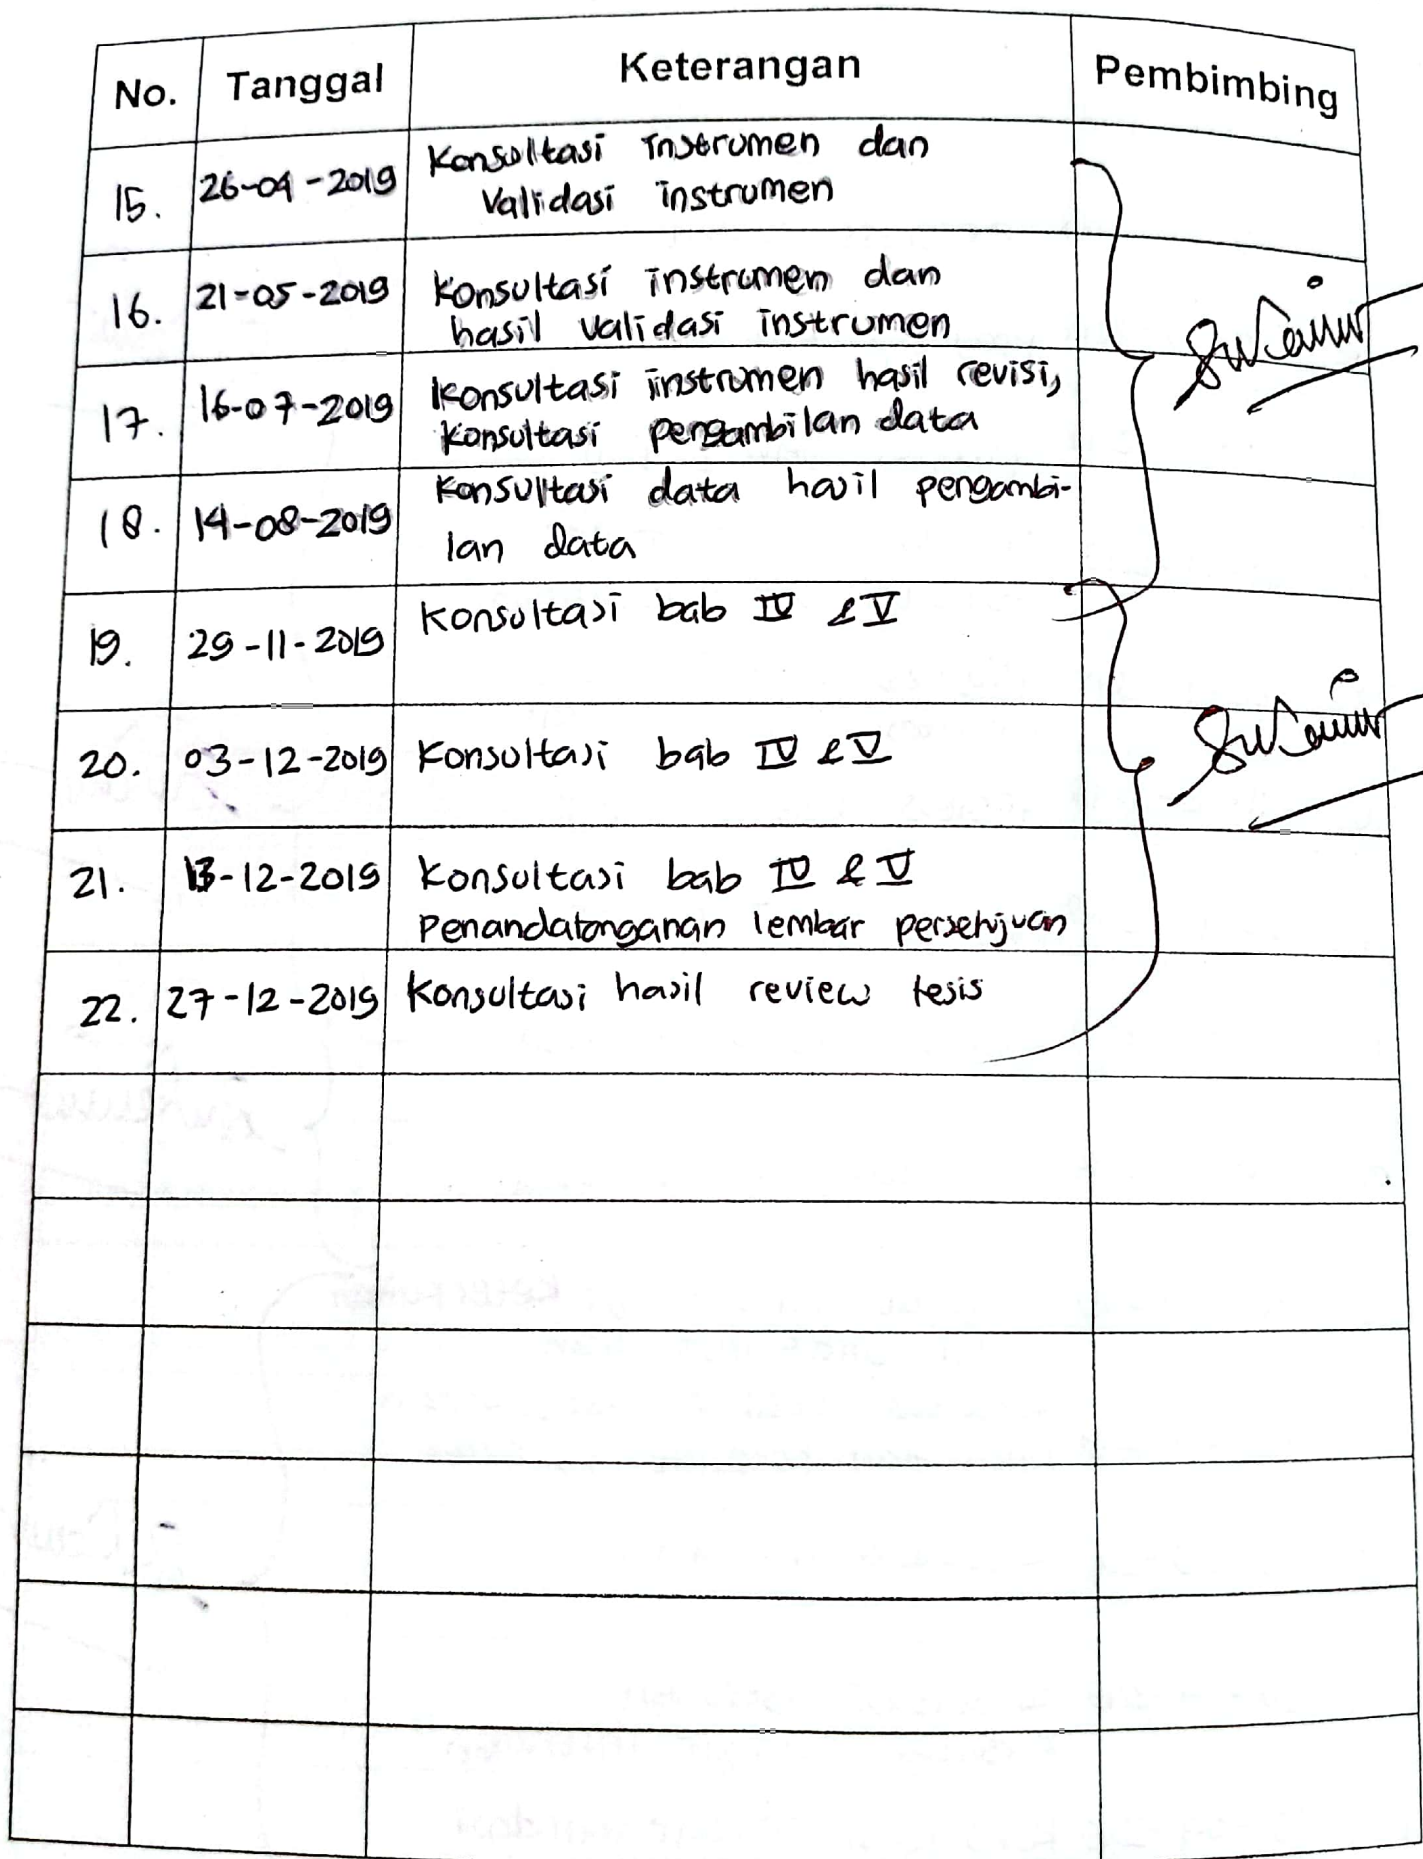 No. Tanggal Keterangan Pembimbing
15. 26-04-2019 Konsultasi instrumen dan
Validasi instrumen
16. 21-05-2019 Konsultasi instrumen dan
hasil validasi instrumen
17. 16-07-2019 Konsultasi instrumen hasil revisi,
Konsultasi pengambilan data
18. 14-08-2019 Konsultasi data hasil pengambi-
lan data
19. 29-11-2019 Konsultasi bab IV & V
20. 03-12-2019 Konsultasi bab IV & V
21. 13-12-2019 Konsultasi bab IV & V
Penandatanganan lembar persetujuan
22. 27-12-2019 Konsultasi hasil review tesis